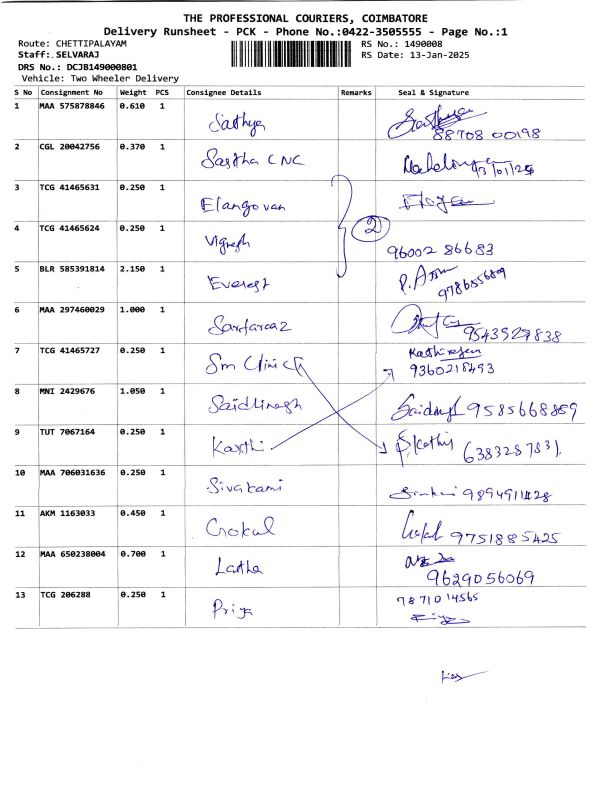 THE PROFESSIONAL COURIERS, COIMBATORE
Delivery Runsheet - PCK - Phone No.:0422-3505555 - Page No.:1
Route: CHETTIPALAYAM RS No.: 1490008
Staff: SELVARAJ RS Date: 13-Jan-2025
DRS No.: DCJB149000801
Vehicle: Two Wheeler Delivery
S No Consignment No Weight PCS Consignee Details Remarks Seal & Signature
1 MAA 575878846 0.610 1 Sathya
88708 00198
2 CGL 20042756 0.370 1 Sastha CNC
3 TCG 41465631 0.250 1 Elangovan
4 TCG 41465624 0.250 1 Vignesh 2 96002 86683
5 BLR 585391814 2.150 1 Everest
6 MAA 297460029 1.000 1 Sarfaraaz 9543527838
7 TCG 41465727 0.250 1 Sm Clinic
9360218493
8 MNI 2429676 1.050 1 9585668859
9 TUT 7067164 0.250 1 Karthi 6383287831
10 MAA 706031636 0.250 1 Sivakami 9894911428
11 AKM 1163033 0.450 1 Gokul 9751885425
12 MAA 650238004 0.700 1 Latha
9629056069
13 TCG 206288 0.250 1 Priya 9871014565